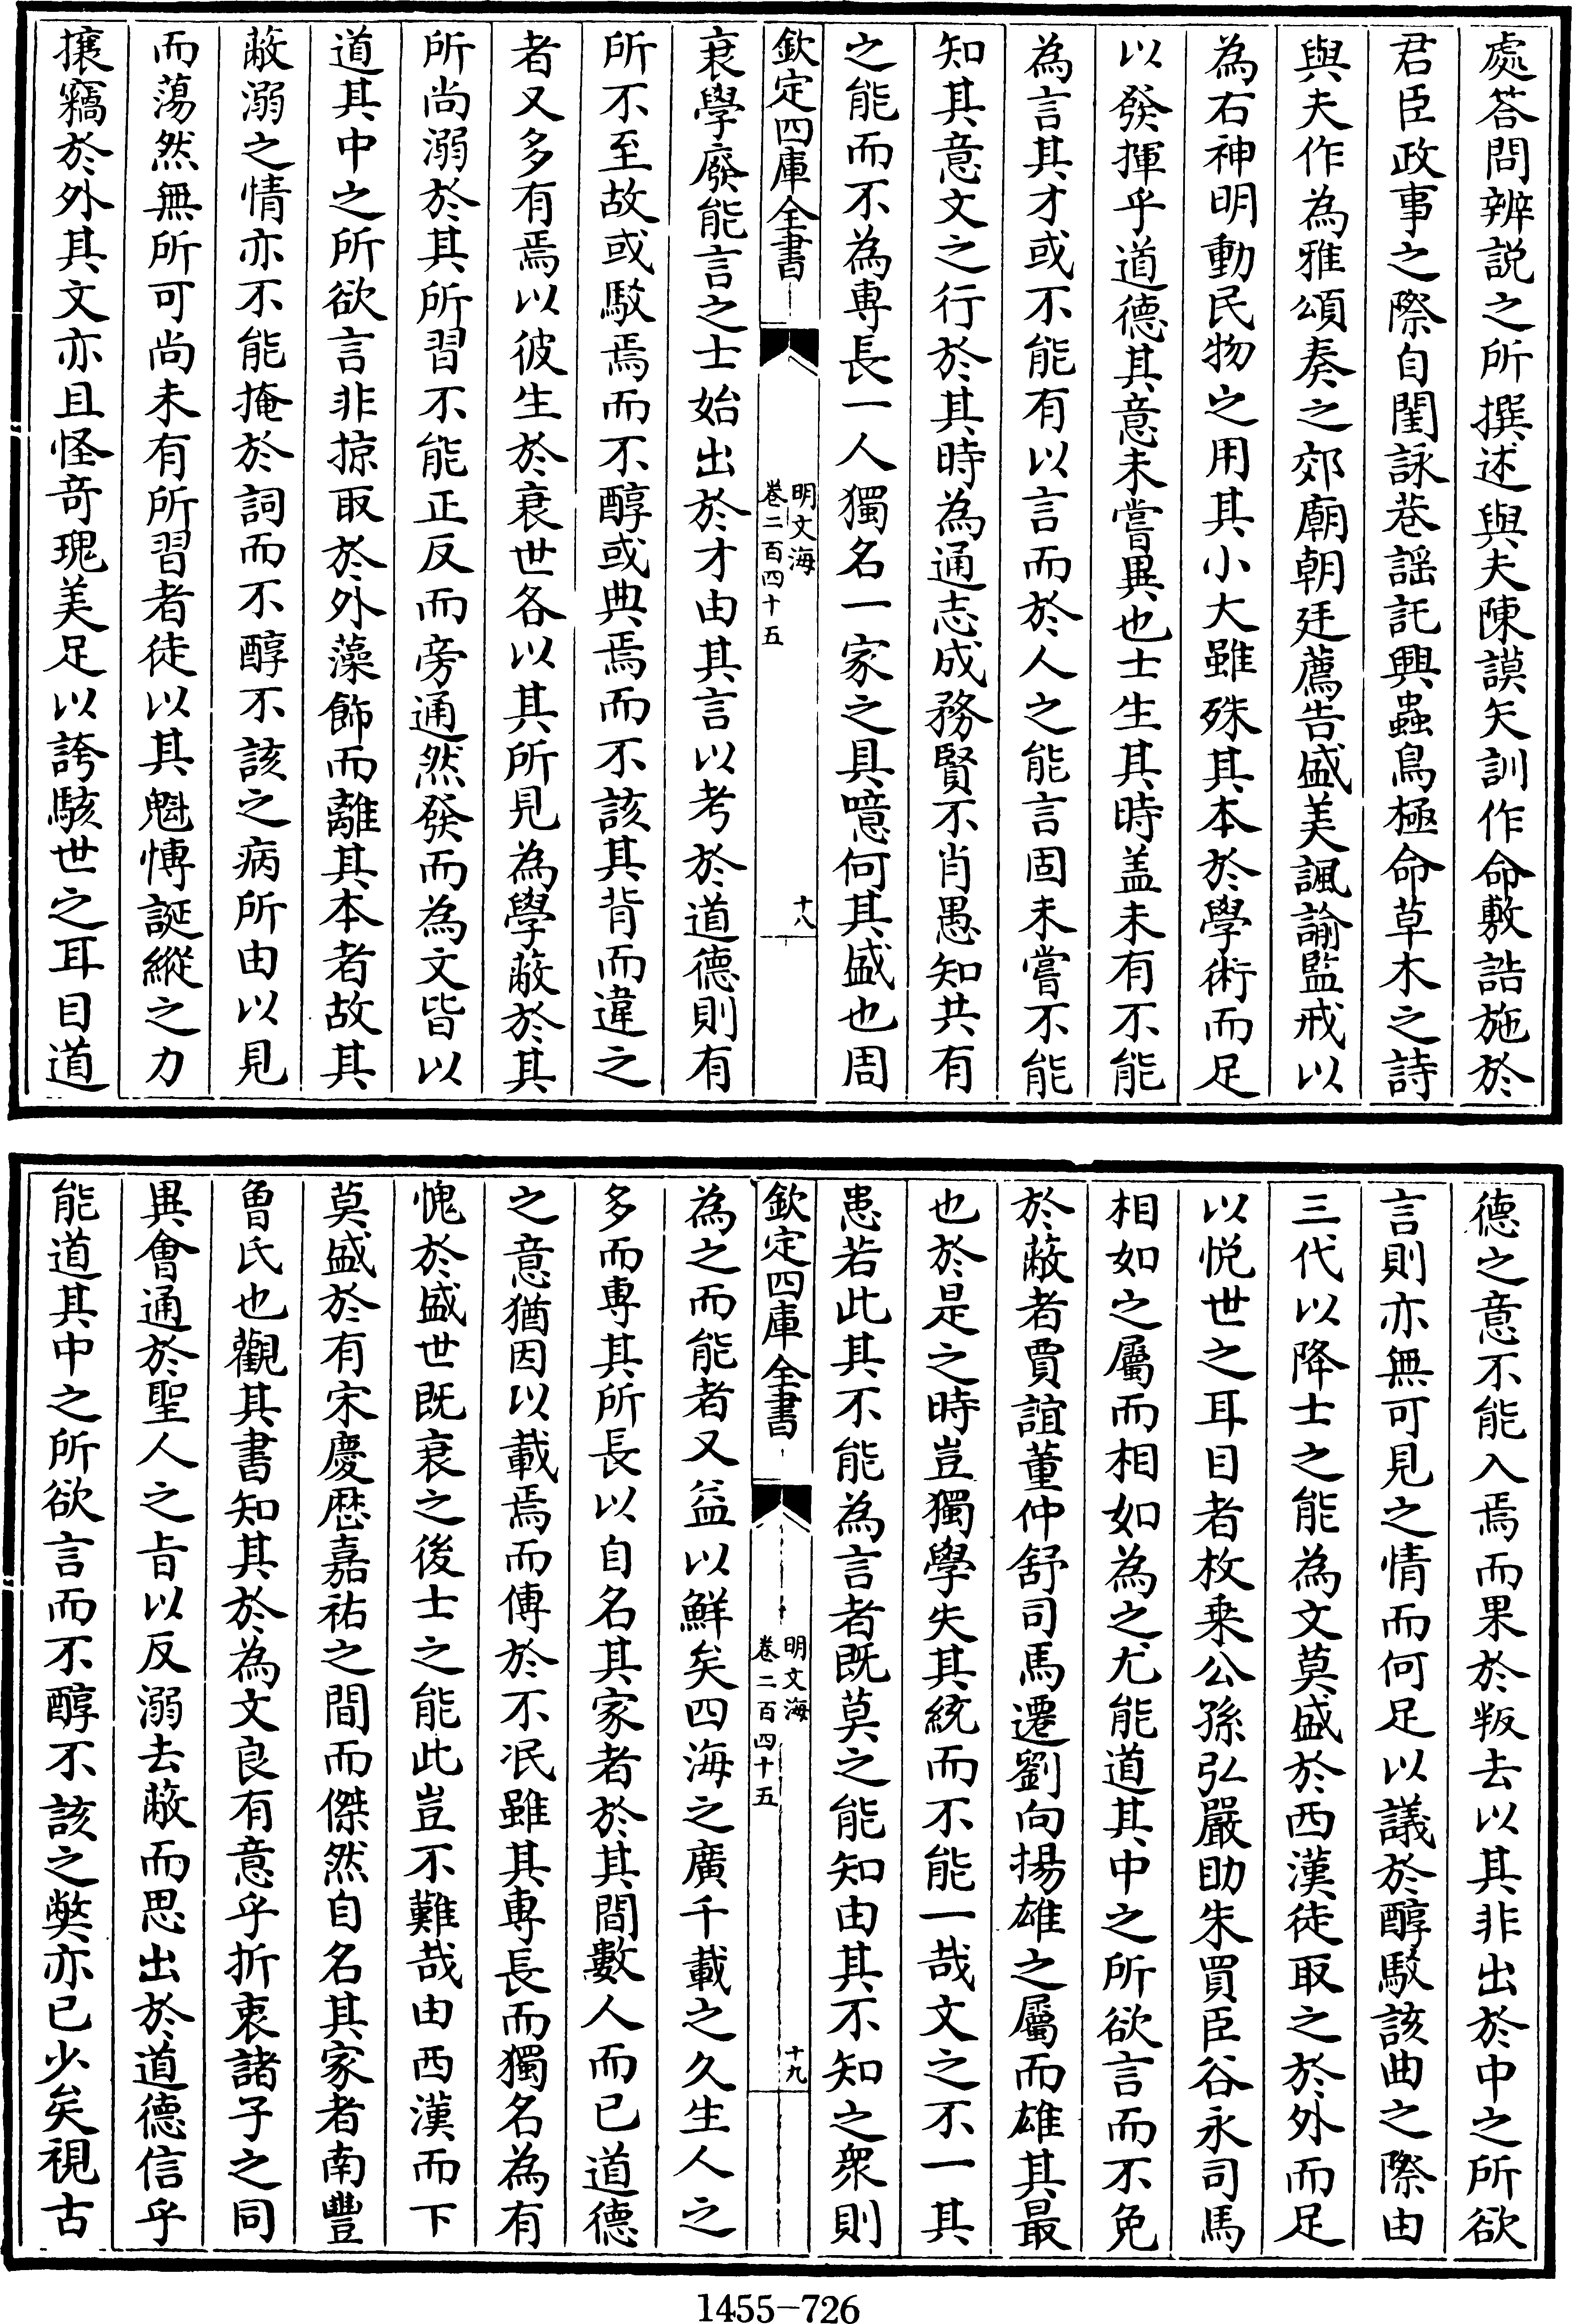 處答問辨説之所撰述與夫陳謨矢訓作命敷誥施於
君臣政事之際自閨詠巷謡託興蟲鳥極命草木之詩
與夫作為雅頌奏之郊廟朝廷薦告盛美諷諭監戒以
為右神明動民物之用其小大雖殊其本於學術而足
以發揮乎道德其意未嘗異也士生其時盖未有不能
為言其才或不能有以言而於人之能言固未嘗不能
知其意文之行於其時為通志成務賢不肖愚知共有
之能而不為專長一人獨名一家之具噫何其盛也周
欽定四庫全書
明文海
卷二百四十五
十八
衰學廢能言之士始出於才由其言以考於道德則有
所不至故或駁焉而不醇或典焉而不該其背而違之
者又多有焉以彼生於衰世各以其所見為學蔽於其
所尚溺於其所習不能正反而旁通然發而為文皆以
道其中之所欲言非掠取於外藻飾而離其本者故其
蔽溺之情亦不能掩於詞而不醇不該之病所由以見
而蕩然無所可尚未有所習者徒以其魁愽誕縱之力
攘竊於外其文亦且怪奇瑰美足以誇駭世之耳目道
德之意不能入焉而果於叛去以其非出於中之所欲
言則亦無可見之情而何足以議於醇駁該曲之際由
三代以降士之能為文莫盛於西漢徒取之於外而足
以悅世之耳目者枚乗公孫弘嚴助朱買臣谷永司馬
相如之屬而相如為之尤能道其中之所欲言而不免
於蔽者賈誼董仲舒司馬遷劉向揚雄之屬而雄其最
也於是之時豈獨學失其統而不能一哉文之不一其
患若此其不能為言者既莫之能知由其不知之衆則
欽定四庫全書
明文海
卷二百四十五
十九
為之而能者又益以鮮矣四海之廣千載之久生人之
多而專其所長以自名其家者於其間數人而已道德
之意猶因以載焉而傳於不泯雖其專長而獨名為有
愧於盛世既衰之後士之能此豈不難哉由西漢而下
莫盛於有宋慶厯嘉祐之間而傑然自名其家者南豐
曾氏也觀其書知其於為文良有意乎折衷諸子之同
異會通於聖人之旨以反溺去蔽而思出於道德信乎
能道其中之所欲言而不醇不該之弊亦已少矣視古
1455—726